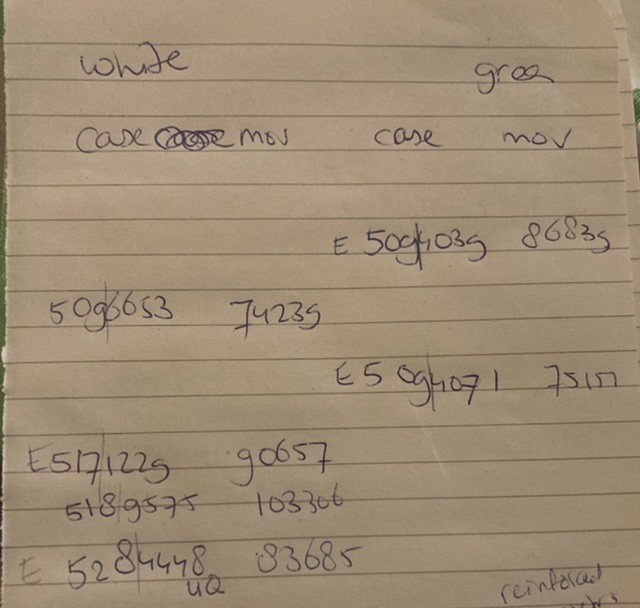 white green
case mov case mov
E 5094039 86839
5096653 74239
E 5094071
E5171229 90657
5189575 103306
E 5284448 83685
UQ
reinforced